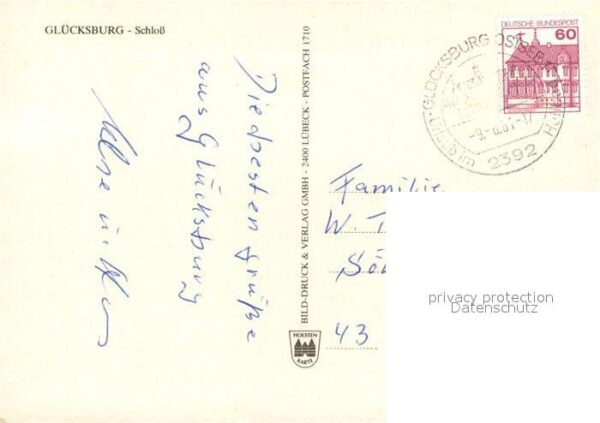 GLÜCKSBURG - Schloß
Die besten Grüße
aus Glücksburg
BILD-DRUCK & VERLAG GMBH - 2400 LÜBECK - POSTFACH 1710
HOLSTEN
KARTE
DEUTSCHE BUNDESPOST
60
GLÜCKSBURG OSTSEE
2392
Familie
W. T
43
privacy protection
Datenschutz